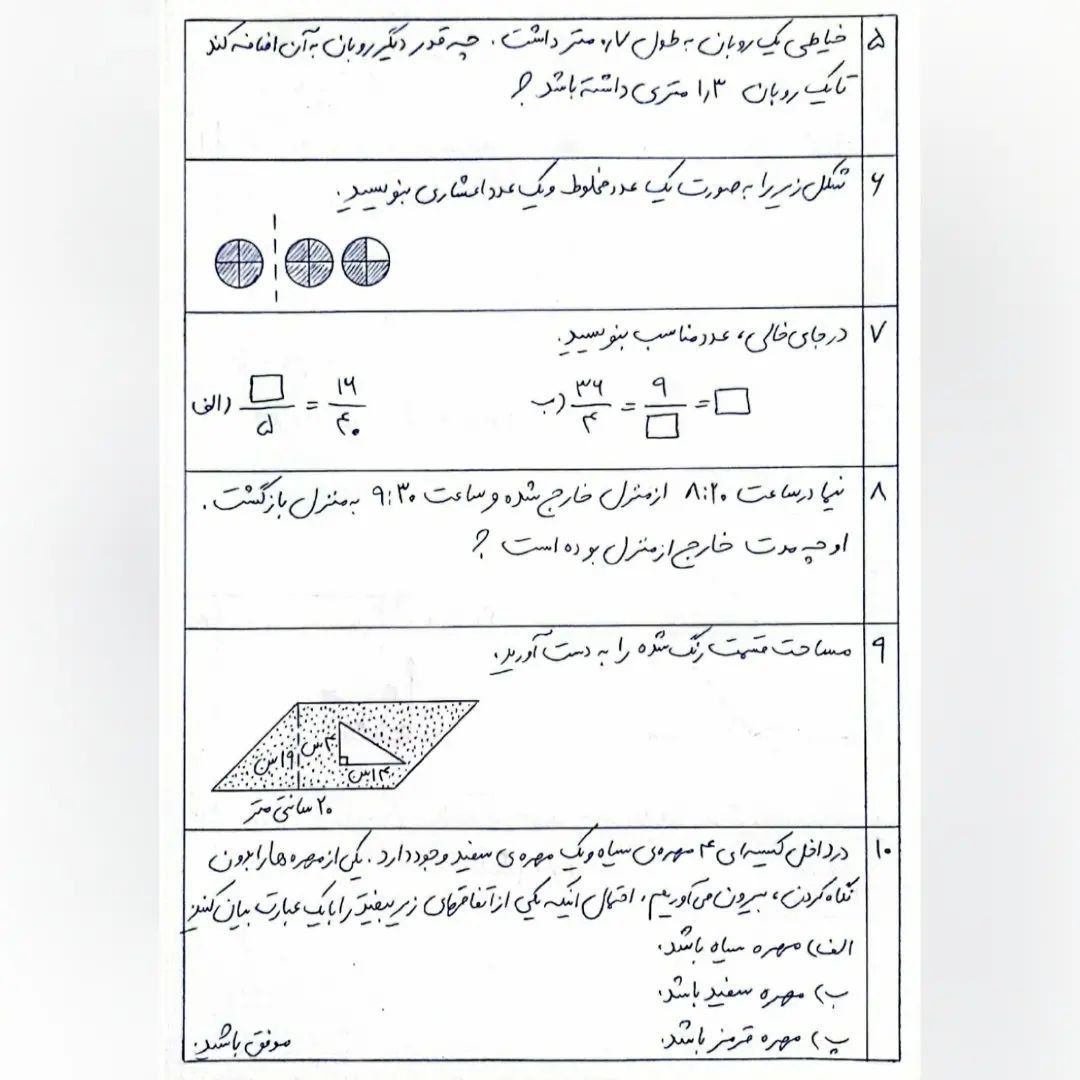 ۵ خیاطی یک روبان به طول ۰٫۷ متر داشت. چه قدر دیگر روبان به آن اضافه کند
تا یک روبان ۱٫۳ متری داشته باشد؟
۶ شکل زیر را به صورت یک عدد مخلوط و یک عدد اعشاری بنویسید.
۷ در جای خالی، عدد مناسب بنویسید.
الف) □/۵ = ۱۶/۴۰ ب) ۳۶/۴ = ۹/□ = □
۸ نیما در ساعت ۸:۲۰ از منزل خارج شده و ساعت ۹:۳۰ به منزل بازگشت.
او چه مدت خارج از منزل بوده است؟
۹ مساحت قسمت رنگ شده را به دست آورید.
س
۲۰ سانتی متر
۱۰ در داخل کیسه ای ۴ مهره‌ی سیاه و یک مهره‌ی سفید وجود دارد. یکی از مهره ها را بدون
نگاه کردن، بیرون می‌آوریم. احتمال اینکه یکی از اتفاق‌های زیر بیفتد را با یک عبارت بیان کنید
الف) مهره سیاه باشد.
ب) مهره سفید باشد.
پ) مهره قرمز باشد.
موفق باشید.